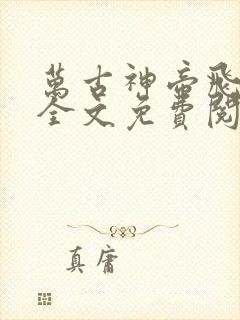 萬古神帝飛
全文免費閱
真庸